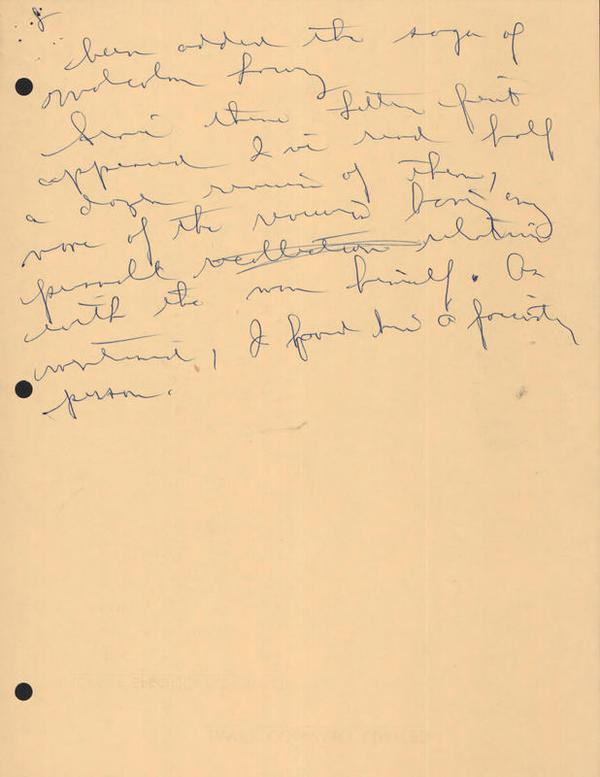 8
been added the saga of
Malcolm Lowry
Since these letters first
appeared I've read half
a dozen reviews of them,
none of the reviewers having any
personal recollection relations
with the man himself. As
mentioned, I found him a
person.